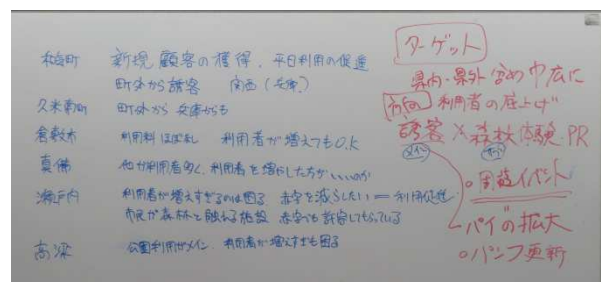 和気町 新規顧客の獲得、平日利用の促進
町外から誘客 関西(兵庫)
久米南町 町外から 兵庫からも
倉敷市 利用料ほぼ無し 利用者が増えてもO.K
真備 他が利用者多く、利用者を増やした方がいいのか
瀬戸内 利用者が増えすぎるのは困る 赤字を減らしたい = 利用促進
市民が森林と触れる施設 赤字でも許容してもらっている
高梁 公園利用がメイン、利用者が増えすぎも困る
ターゲット
県内・県外 含め巾広に
方向 利用者の底上げ
誘客 × 森林体験 PR
メイン
○周遊イベント
パイの拡大
○パンフ更新